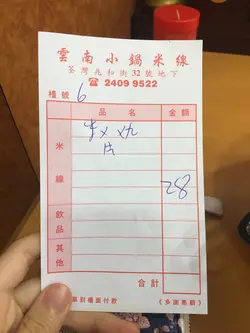 雲南小鍋米線
荃灣兆和街32號地下
☎ 2409 9522
檯號 6
品名 金額
片
米線
28
飲品
其他
合計
單到櫃面付款 《多謝惠顧》